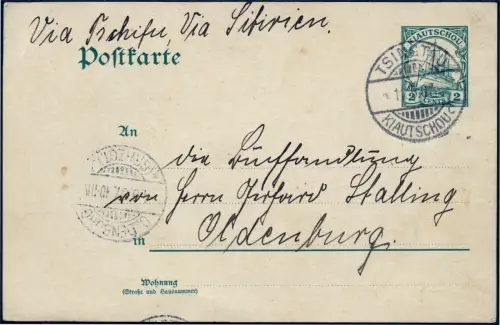 Via Tschifu, Via Sibirien.
Postkarte
KIAUTSCHOU
2 CENTS 2
TSINGTAU
KIAUTSCHOU
An
die Buchhandlung
von Herrn Gerhard Stalling
in Oldenburg.
Wohnung
(Straße und Hausnummer)